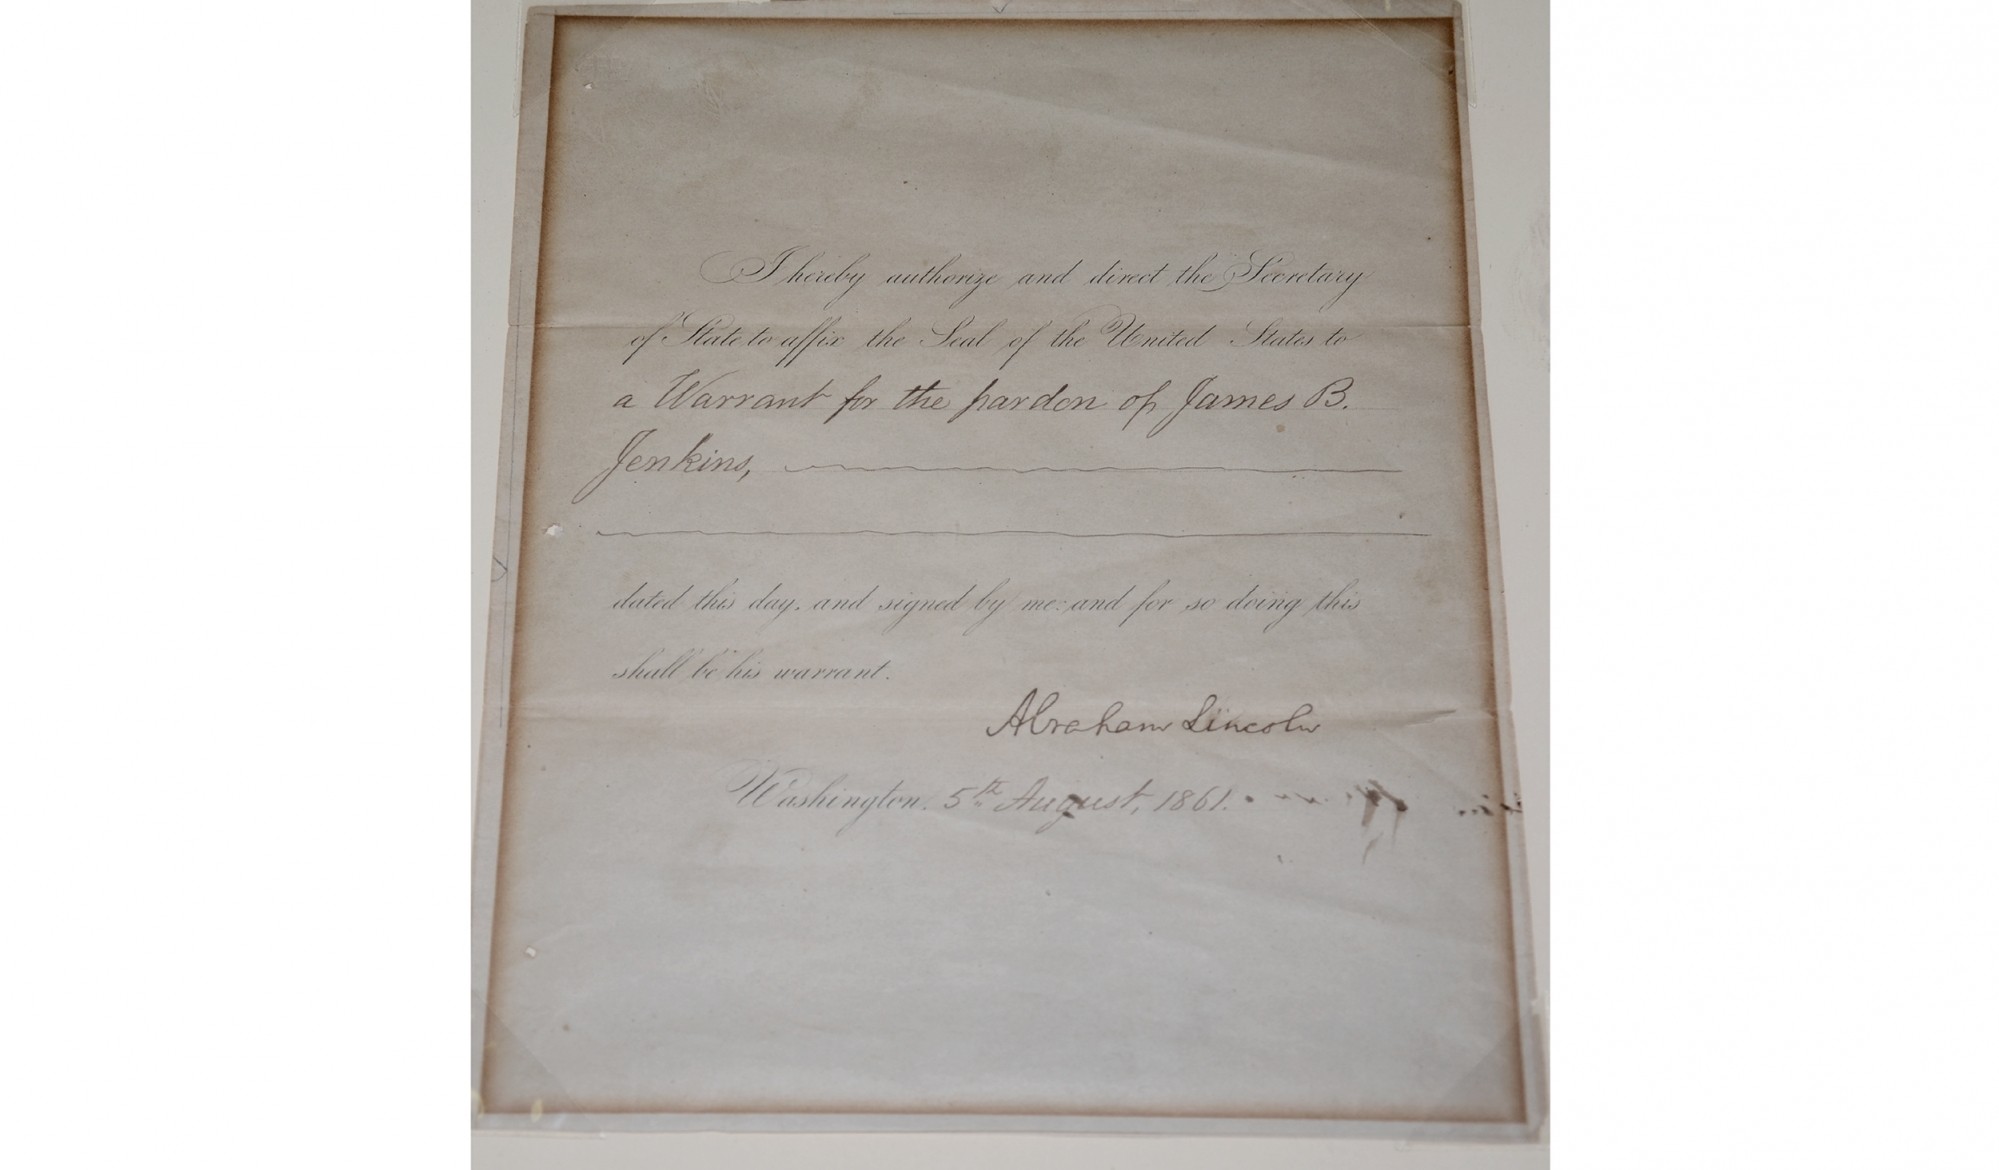 I hereby authorize and direct the Secretary
of State to affix the Seal of the United States to
a Warrant for the pardon of James B.
Jenkins,
dated this day, and signed by me: and for so doing this
shall be his warrant.
Abraham Lincoln
Washington, 5th August, 1861.